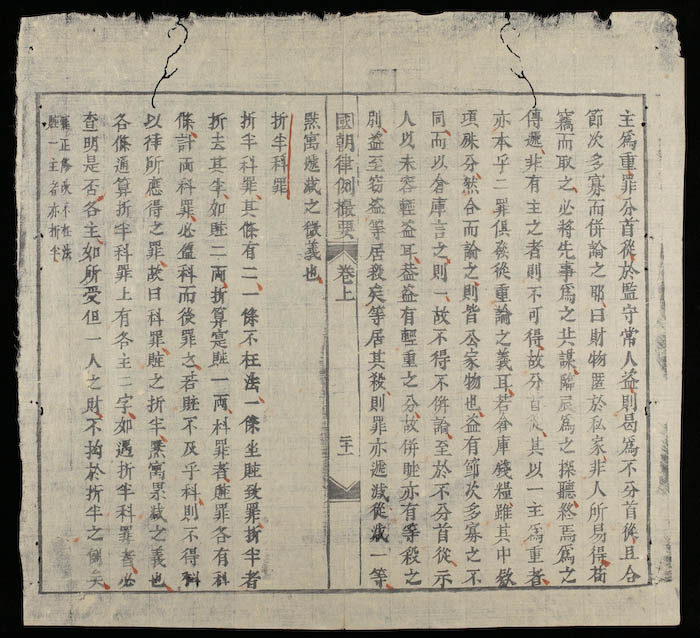 主爲重罪分首從於監守常人盜則曷爲不分首從且合
節次多寡而併論之耶曰財物匿於私家非人所易得苟
竊而取之必將先事爲之共謀臨辰爲之探聽終焉爲之
傳遞非有主之者則不可得故分首從其以一主爲重者
亦本乎二罪俱發從重論之義耳若倉庫錢糧雖其中款
項殊分然合而論之則皆公家物也盜有節次多寡之不
同而以倉庫言之則一故不得不併論至於不分首從示
人以未容輕盜耳葢盜有輕重之分故併賍亦有等殺之
別盜至窃盜等居殺矣等居其殺則罪亦遞減從減一等
國朝律例撮要 卷上 二十一
㸃寓遞減之微義也
折半科罪
折半科罪其條有二一條不枉法一條坐賍致罪折半者
折去其半如賍二兩折算寔賍一兩科罪者賍罪各有科
條計兩科罪必盈科而後罪之若賍不及乎科則不得科
以律所應得之罪故曰科罪賍之折半㸃寓累減之義也
各條通算折半科罪上有各主二字如遇折半科罪者必
查明是否各主如所受但一人之財不拘於折半之例矣
正修改不枉法
賍一主者亦折半